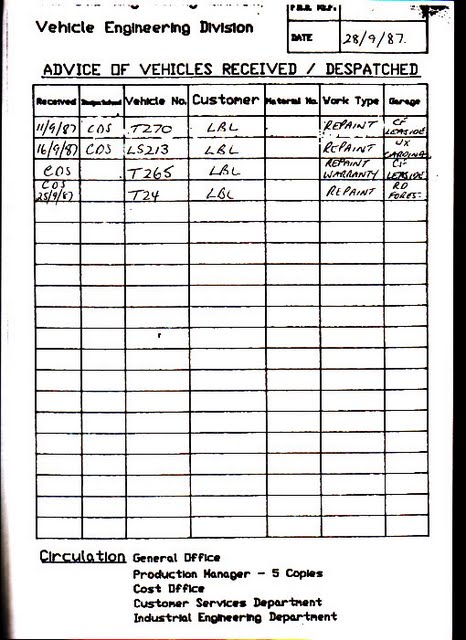 Vehicle Engineering Division
FILE REF.
DATE 28/9/87.
ADVICE OF VEHICLES RECEIVED / DESPATCHED
Received Despatched Vehicle No. Customer Material No. Work Type Garage
11/9/87 COS T270 LBL REPAINT CF LEASIDE
16/9/87 COS LS213 LBL REPAINT WX CARDINAL
COS T265 LBL REPAINT WARRANTY CF LEASIDE
COS 25/9/87 T24 LBL REPAINT RD FOREST
Circulation General Office
Production Manager - 5 Copies
Cost Office
Customer Services Department
Industrial Engineering Department